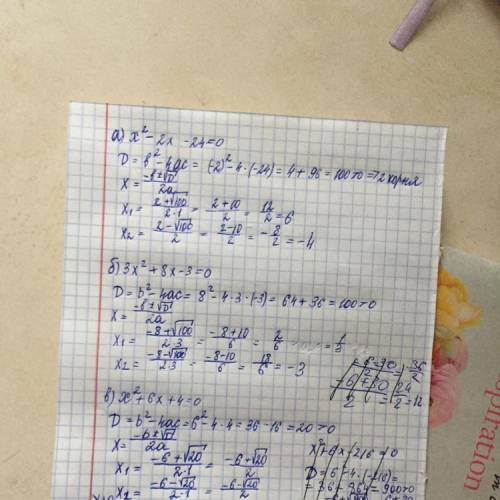 а) x² - 2x - 24 = 0
D = b² - 4ac = (-2)² - 4 · (-24) = 4 + 96 = 100 > 0 => 2 корня
x = (-b ± √D) / 2a
x₁ = (2 + √100) / (2·1) = (2 + 10) / 2 = 12 / 2 = 6
x₂ = (2 - √100) / 2 = (2 - 10) / 2 = -8 / 2 = -4
б) 3x² + 8x - 3 = 0
D = b² - 4ac = 8² - 4 · 3 · (-3) = 64 + 36 = 100 > 0
x = (-b ± √D) / 2a
x₁ = (-8 + √100) / (2·3) = (-8 + 10) / 6 = 2 / 6 = 1 / 3
x₂ = (-8 - √100) / (2·3) = (-8 - 10) / 6 = 18 / 6 = -3
в) x² + 6x + 4 = 0
D = b² - 4ac = 6² - 4 · 4 = 36 - 16 = 20 > 0
x = (-b ± √D) / 2a
x₁ = (-6 + √20) / (2·1) = (-6 + √20) / 2
x₂ = (-6 - √20) / (2·1) = (-6 - √20) / 2
piration